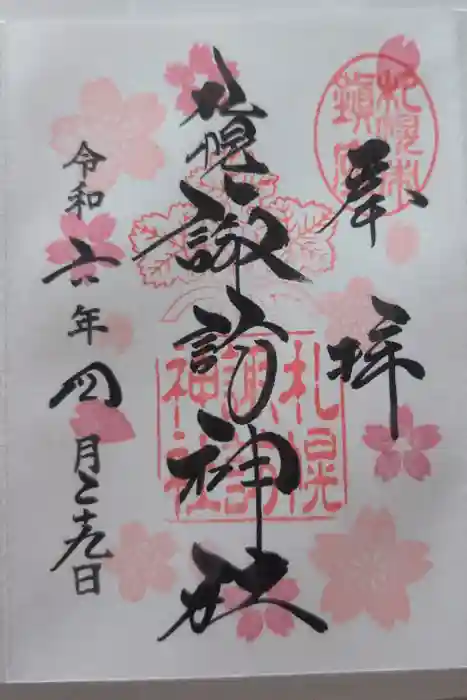 奉拝
札幌諏訪神社
令和六年四月二十九日
札幌市
札幌
諏訪
神社